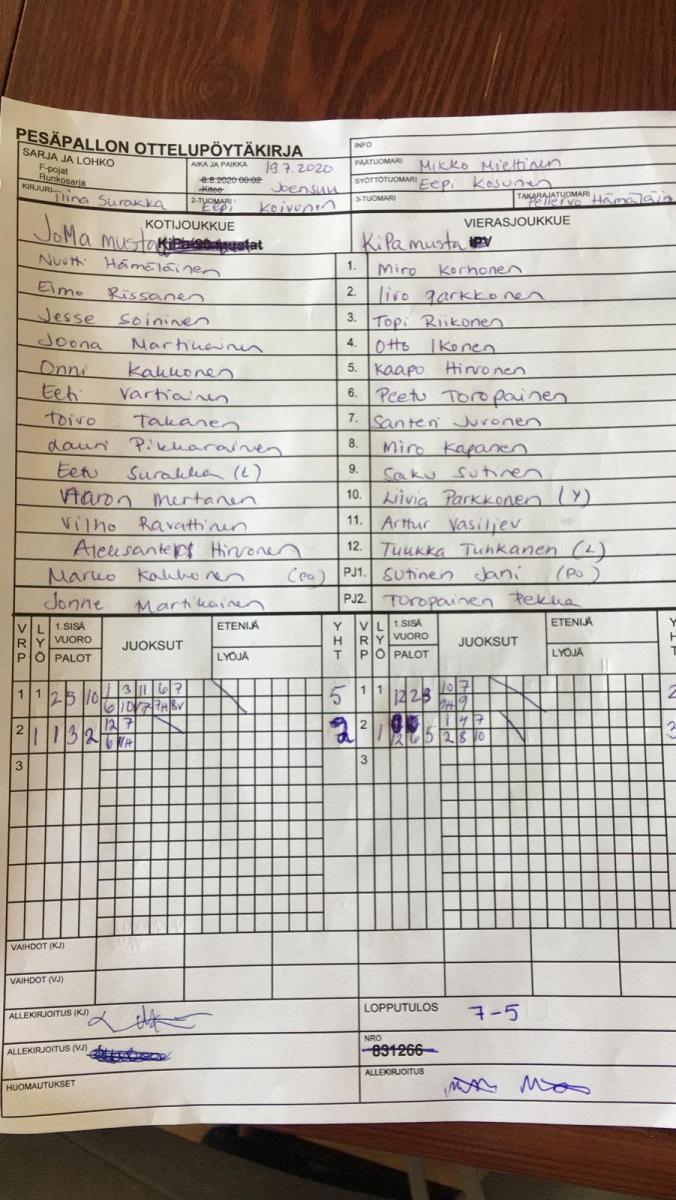 PESÄPALLON OTTELUPÖYTÄKIRJA
INFO
SARJA JA LOHKO
F-pojat
Runkosarja
AIKA JA PAIKKA
19.7.2020
8.8.2020 00:02
Kitee
Joensuu
PÄÄTUOMARI Mikko Miettinen
SYÖTTÖTUOMARI Eepi Kosunen
KIRJURI Tiina Surakka
2-TUOMARI Eepi Koivunen
3-TUOMARI
TAKARAJATUOMARI Pellervo Hämäläin
KOTIJOUKKUE
VIERASJOUKKUE
JoMa musta KiPa-90 mustat
KiPa musta IPV
Nuutti Hämäläinen 1. Miro Korhonen
Eimo Rissanen 2. Iivo Parkkonen
Jesse Soininen 3. Topi Riikonen
Joona Martikainen 4. Otto Ikonen
Onni Kakkonen 5. Kaapo Hirvonen
Eeti Vartiainen 6. Peetu Toropainen
Toivo Takanen 7. Santeri Juvonen
Lauri Pikkarainen 8. Miro Kapanen
Eetu Surakka (L) 9. Saku Sutinen
Aaron Mertanen 10. Liivia Parkkonen (Y)
Vilho Ravattinen 11. Arttur Vasiljev
Hirvonen 12. Tuukka Tuhkanen (L)
Marko Kakkonen (PO) PJ1. Sutinen Jani (PO)
Jonne Martikainen PJ2. Toropainen Pekka
VRP LYÖ 1.SISÄ VUORO PALOT JUOKSUT ETENIJÄ LYÖJÄ YHT VRP LYÖ 1.SISÄ VUORO PALOT JUOKSUT ETENIJÄ LYÖJÄ YHT
1 1 2 5 10 1 3 11 6 7 5 1 1 12 2 8 10 7 2
6 10 V7 7H 8V 7H 9
2 1 1 3 2 12 7 2 2 1 12 6 5 1 4 7 3
6 11H 2 8 10
3 3
VAIHDOT (KJ)
VAIHDOT (VJ)
ALLEKIRJOITUS (KJ)
LOPPUTULOS 7-5
ALLEKIRJOITUS (VJ)
NRO
831266
HUOMAUTUKSET
ALLEKIRJOITUS